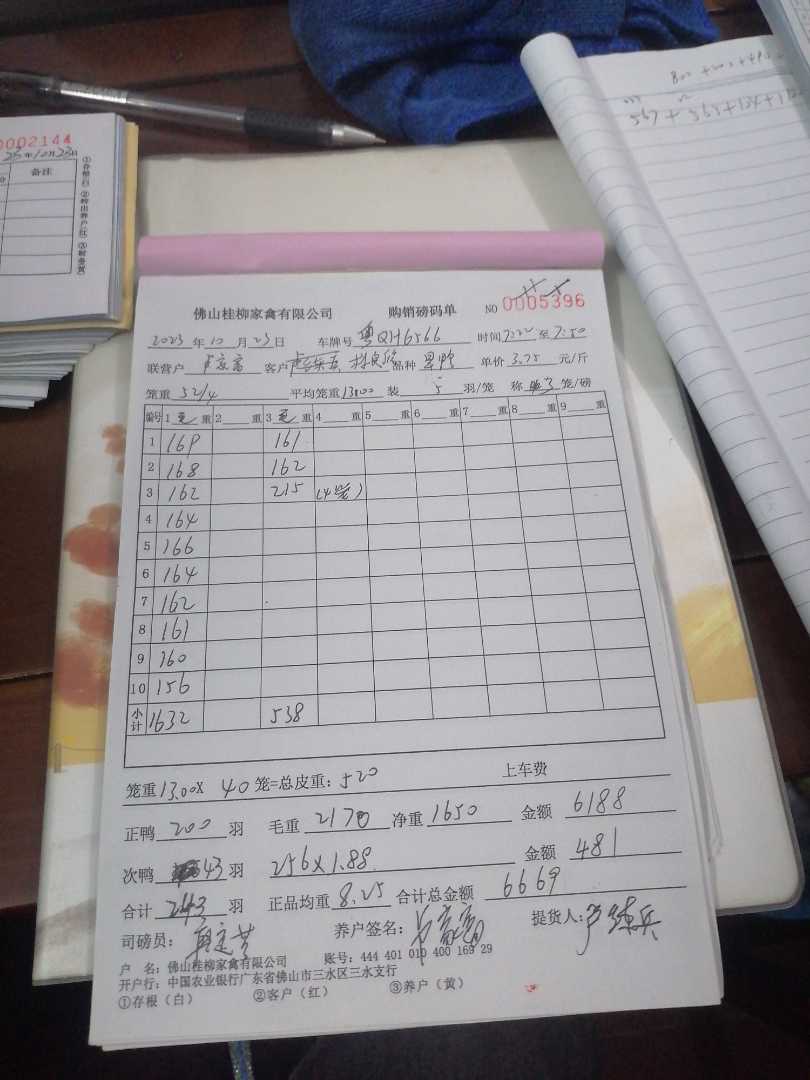 0002144
23年10月23日
备注
①存根(白) ②转出养户(红) ③财务(黄)
567 + 565 + 124 +
佛山桂柳家禽有限公司 购销磅码单 NO 0005396
2023 年 10 月 23 日 车牌号 粤QH6566 时间 7:20 至 7:50
联营户 客户 品种 单价 3.75 元/斤
笼重 52/4 平均笼重 13.00 装 5 羽/笼 称 3 笼/磅
编号 1 毛 重 2 重 3 毛 重 4 重 5 重 6 重 7 重 8 重 9 重
1 169 161
2 168 162
3 162 215 (4笼)
4 164
5 166
6 164
7 162
8 161
9 160
10 156
小计 1632 538
笼重 13.00 X 40 笼=总皮重: 520 上车费
正鸭 200 羽 毛重 2170 净重 1650 金额 6188
次鸭 43 羽 256 X 1.88 金额 481
合计 243 羽 正品均重 8.25 合计总金额 6669
司磅员: 养户签名: 提货人:
户 名: 佛山桂柳家禽有限公司 账号: 444 401 010 400 169 29
开户行: 中国农业银行广东省佛山市三水区三水支行
①存根(白) ②客户(红) ③养户(黄)